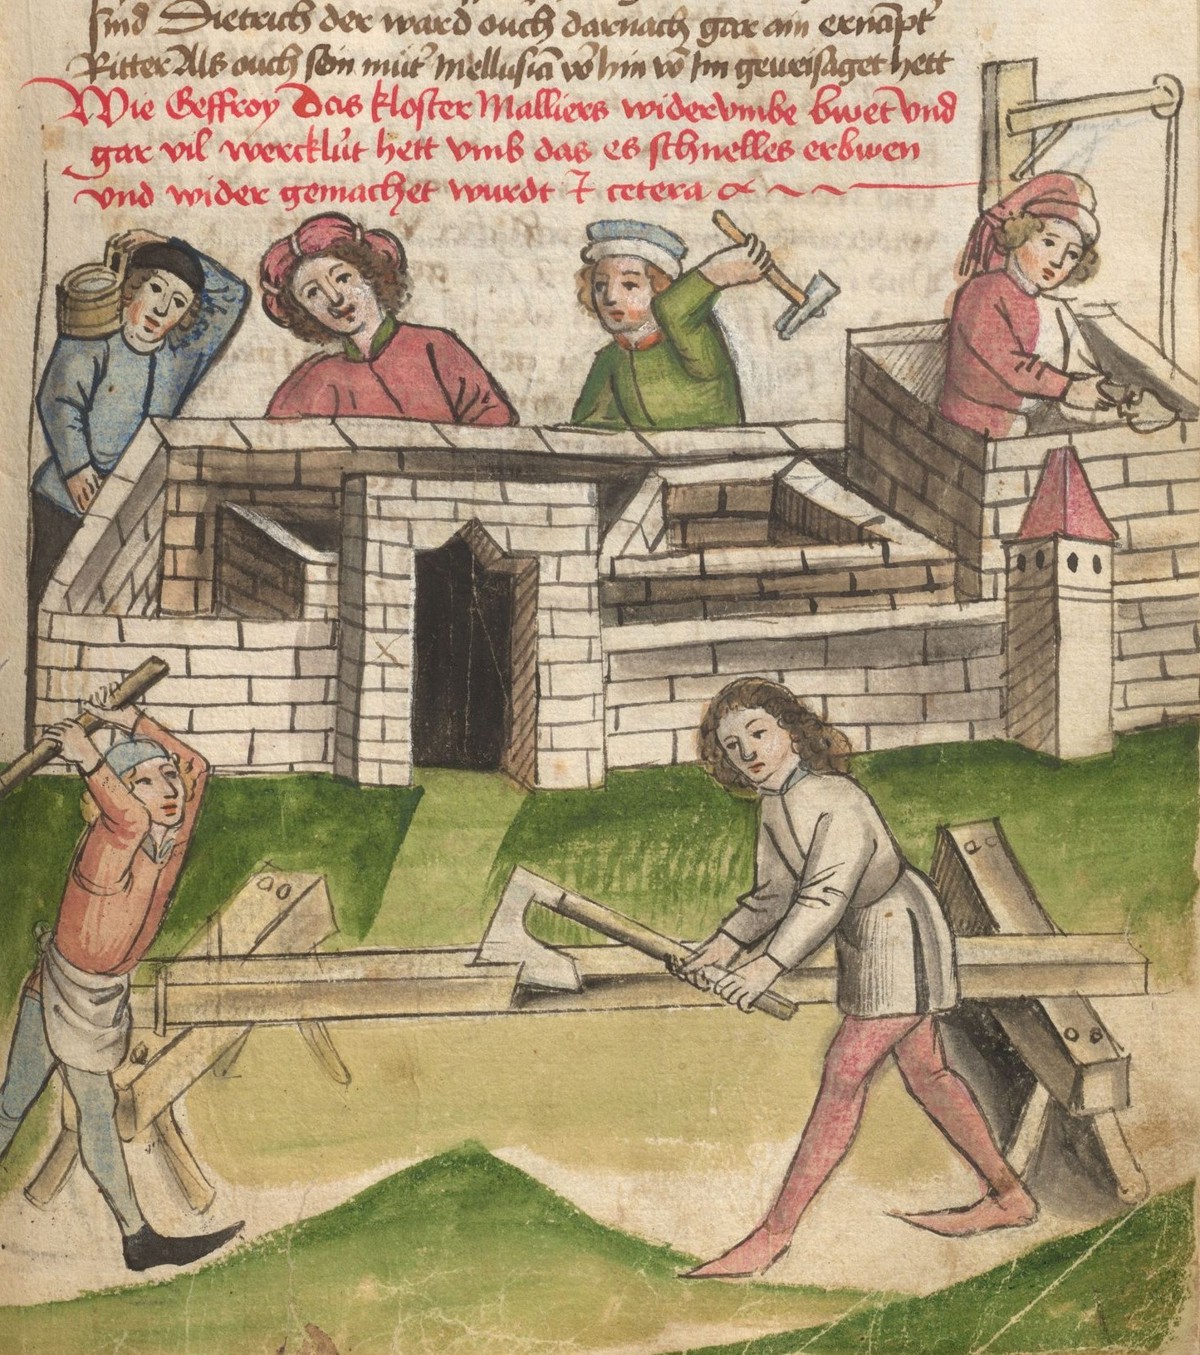 sind Dietrich der ward ouch darnach gar ain ernāpt
Ritter Als ouch sein mūt' Mellusiā vō hin vō Im geweisaget hett
Wie Geffroy Das kloster Malliers widervmbe bwet vnd
gar vil wercklu̍t hett vmb das es schnelles erbwen
vnd wider gemachet wurdt ⁊ cetera